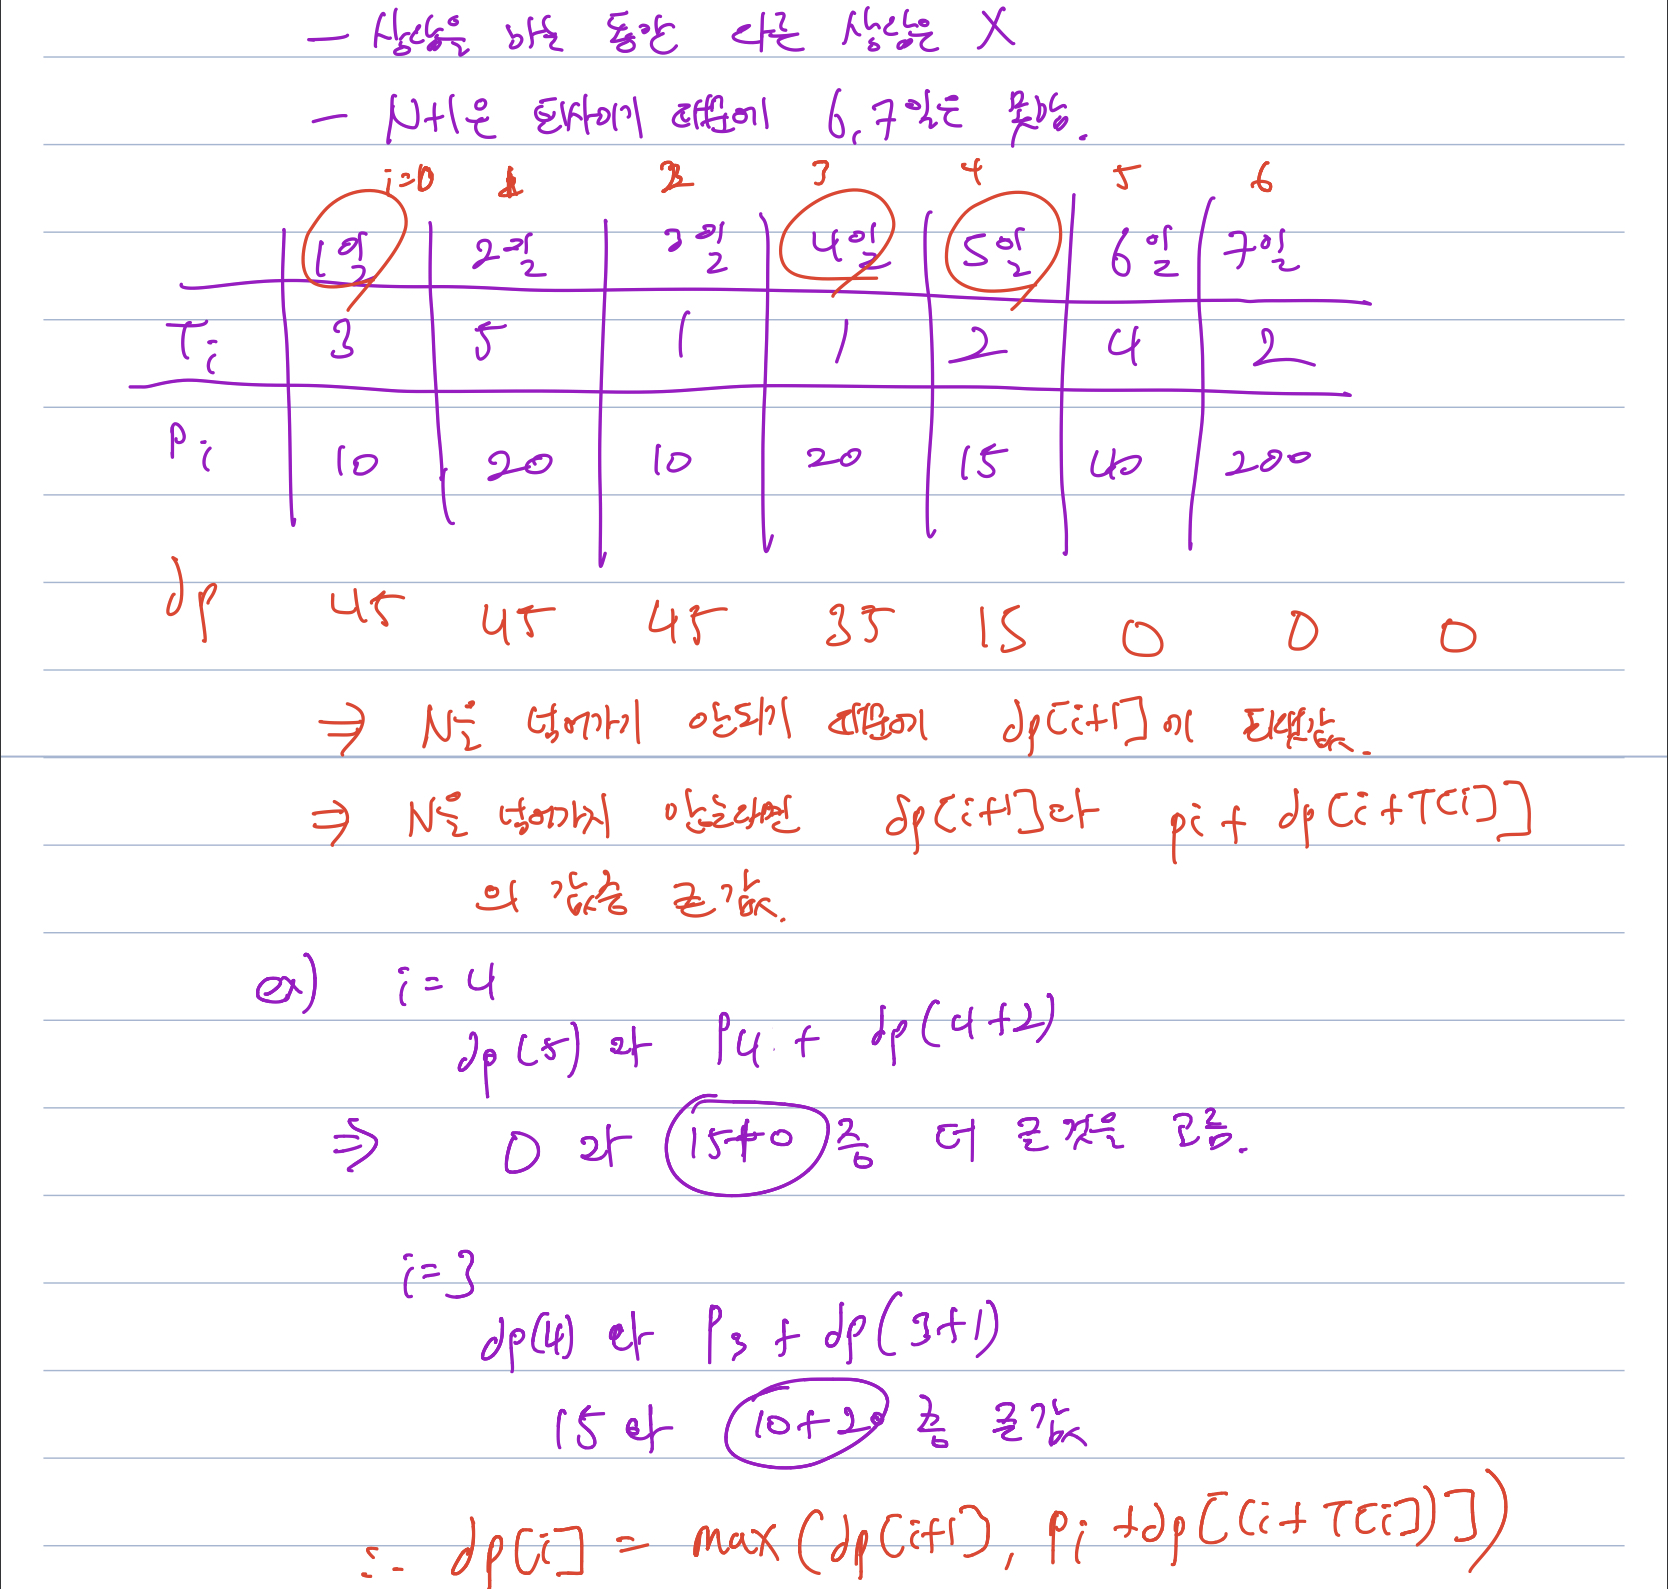 - 상담을 하는 동안 다른 상담은 X
- N+1은 퇴사이기 때문에 6, 7일은 못함.
i=0 1 2 3 4 5 6
1일 2일 3일 4일 5일 6일 7일
Ti 3 5 1 1 2 4 2
Pi 10 20 10 20 15 40 200
dp 45 45 45 35 15 0 0 0
⇒ N을 넘어가기 안되기 때문에 dp[i+1]이 최댓값.
⇒ N을 넘어가지 않는다면 dp[i+1]과 pi + dp[i+T[i]]
의 값중 큰 값.
ex) i = 4
dp(5) 와 P4 + dp(4+2)
⇒ 0 과 15+0 중 더 큰 것을 고름.
i=3
dp(4) 와 P3 + dp(3+1)
15 와 10+20 중 큰 값
∴ dp[i] = max(dp[i+1], Pi +dp[(i+T[i])])